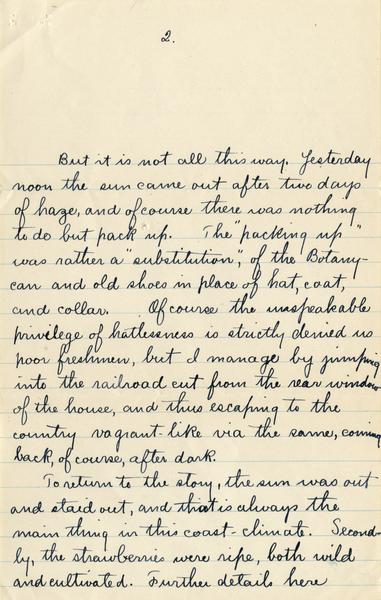 2.
But it is not all this way. Yesterday
noon the sun came out after two days
of haze, and of course there was nothing
to do but pack up. The "packing up"
was rather a "substitution", of the Botany-
can and old shoes in place of hat, coat,
and collar. Of course the unspeakable
privilege of hatlessness is strictly denied us
poor freshmen, but I manage by jumping
into the railroad cut from the rear window
of the house, and thus escaping to the
country vagrant-like via the same, coming
back, of course, after dark.
To return to the story, the sun was out
and staid out, and that is always the
main thing in this coast-climate. Second-
ly, the strawberries were ripe, both wild
and cultivated. Further details here